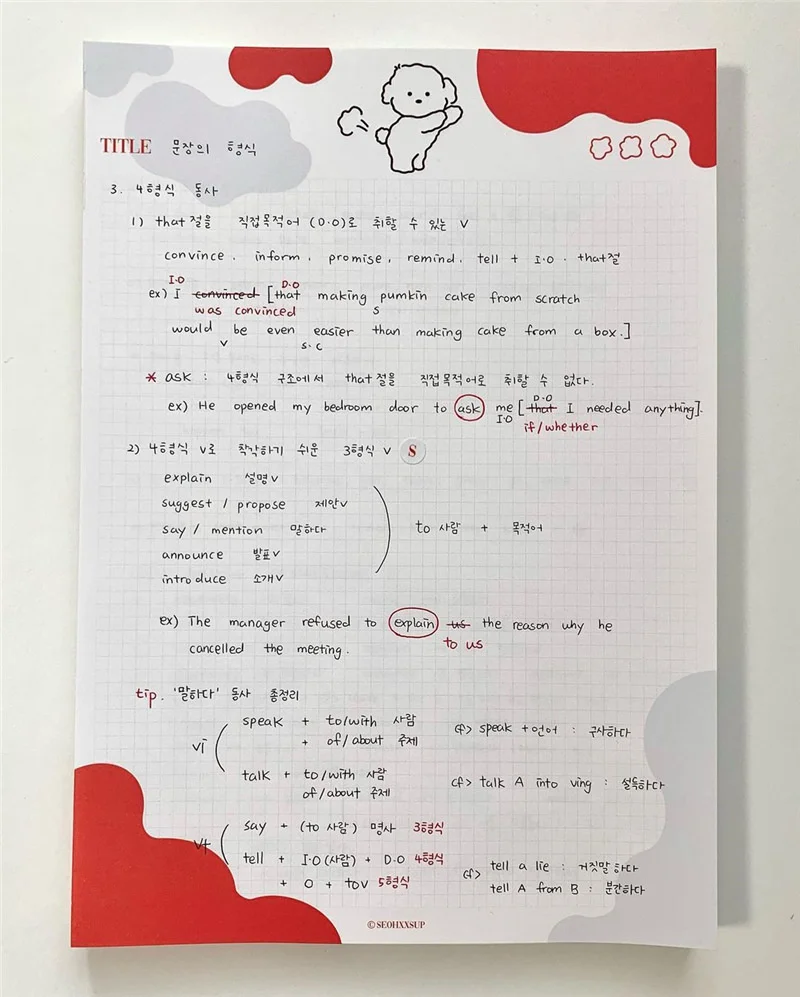 TITLE 문장의 형식
3. 4형식 동사
1) that절을 직접목적어 (D·O)로 취할 수 있는 V
convince, inform, promise, remind, tell + I·O · that절
I·O D·O
ex) I convinced [that making pumkin cake from scratch
was convinced S
would be even easier than making cake from a box.]
V S·C
* ask : 4형식 구조에서 that절을 직접목적어로 취할 수 없다.
D·O
ex) He opened my bedroom door to ask me [that I needed anything].
I·O if/whether
2) 4형식 V로 착각하기 쉬운 3형식 V S
explain 설명V
suggest / propose 제안V
say / mention 말하다 to 사람 + 목적어
announce 발표V
introduce 소개V
ex) The manager refused to explain us the reason why he
to us
cancelled the meeting.
tip. '말하다' 동사 총정리
speak + to/with 사람 cf> speak +언어 : 구사하다
+ of/about 주제
vi
talk + to/with 사람 cf> talk A into ving : 설득하다
of/about 주제
say + (to 사람) 명사 3형식
vt
tell + I·O(사람) + D·O 4형식 cf> tell a lie : 거짓말 하다
+ O + toV 5형식 tell A from B : 분간하다
© SEOHXXSUP